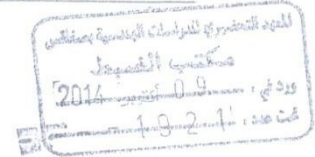 المعهد التحضيري للدراسات الهندسية بصفاقس
مكتب الضبط
ورد في : 09 أكتوبر 2014
تحت عدد : 1921